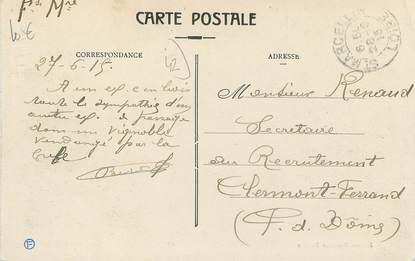 Fse Mre
10€
CARTE POSTALE
CORRESPONDANCE
ADRESSE
ST MARCELL
27-6-15.
A un ex. c en
toute la sympathie d'un
autre ex. de passage
dans un vignoble
vendangé par la
Monsieur Renaud
Secretaire
au Recrutement
Clermont-Ferrand
(P. d. Dôme)